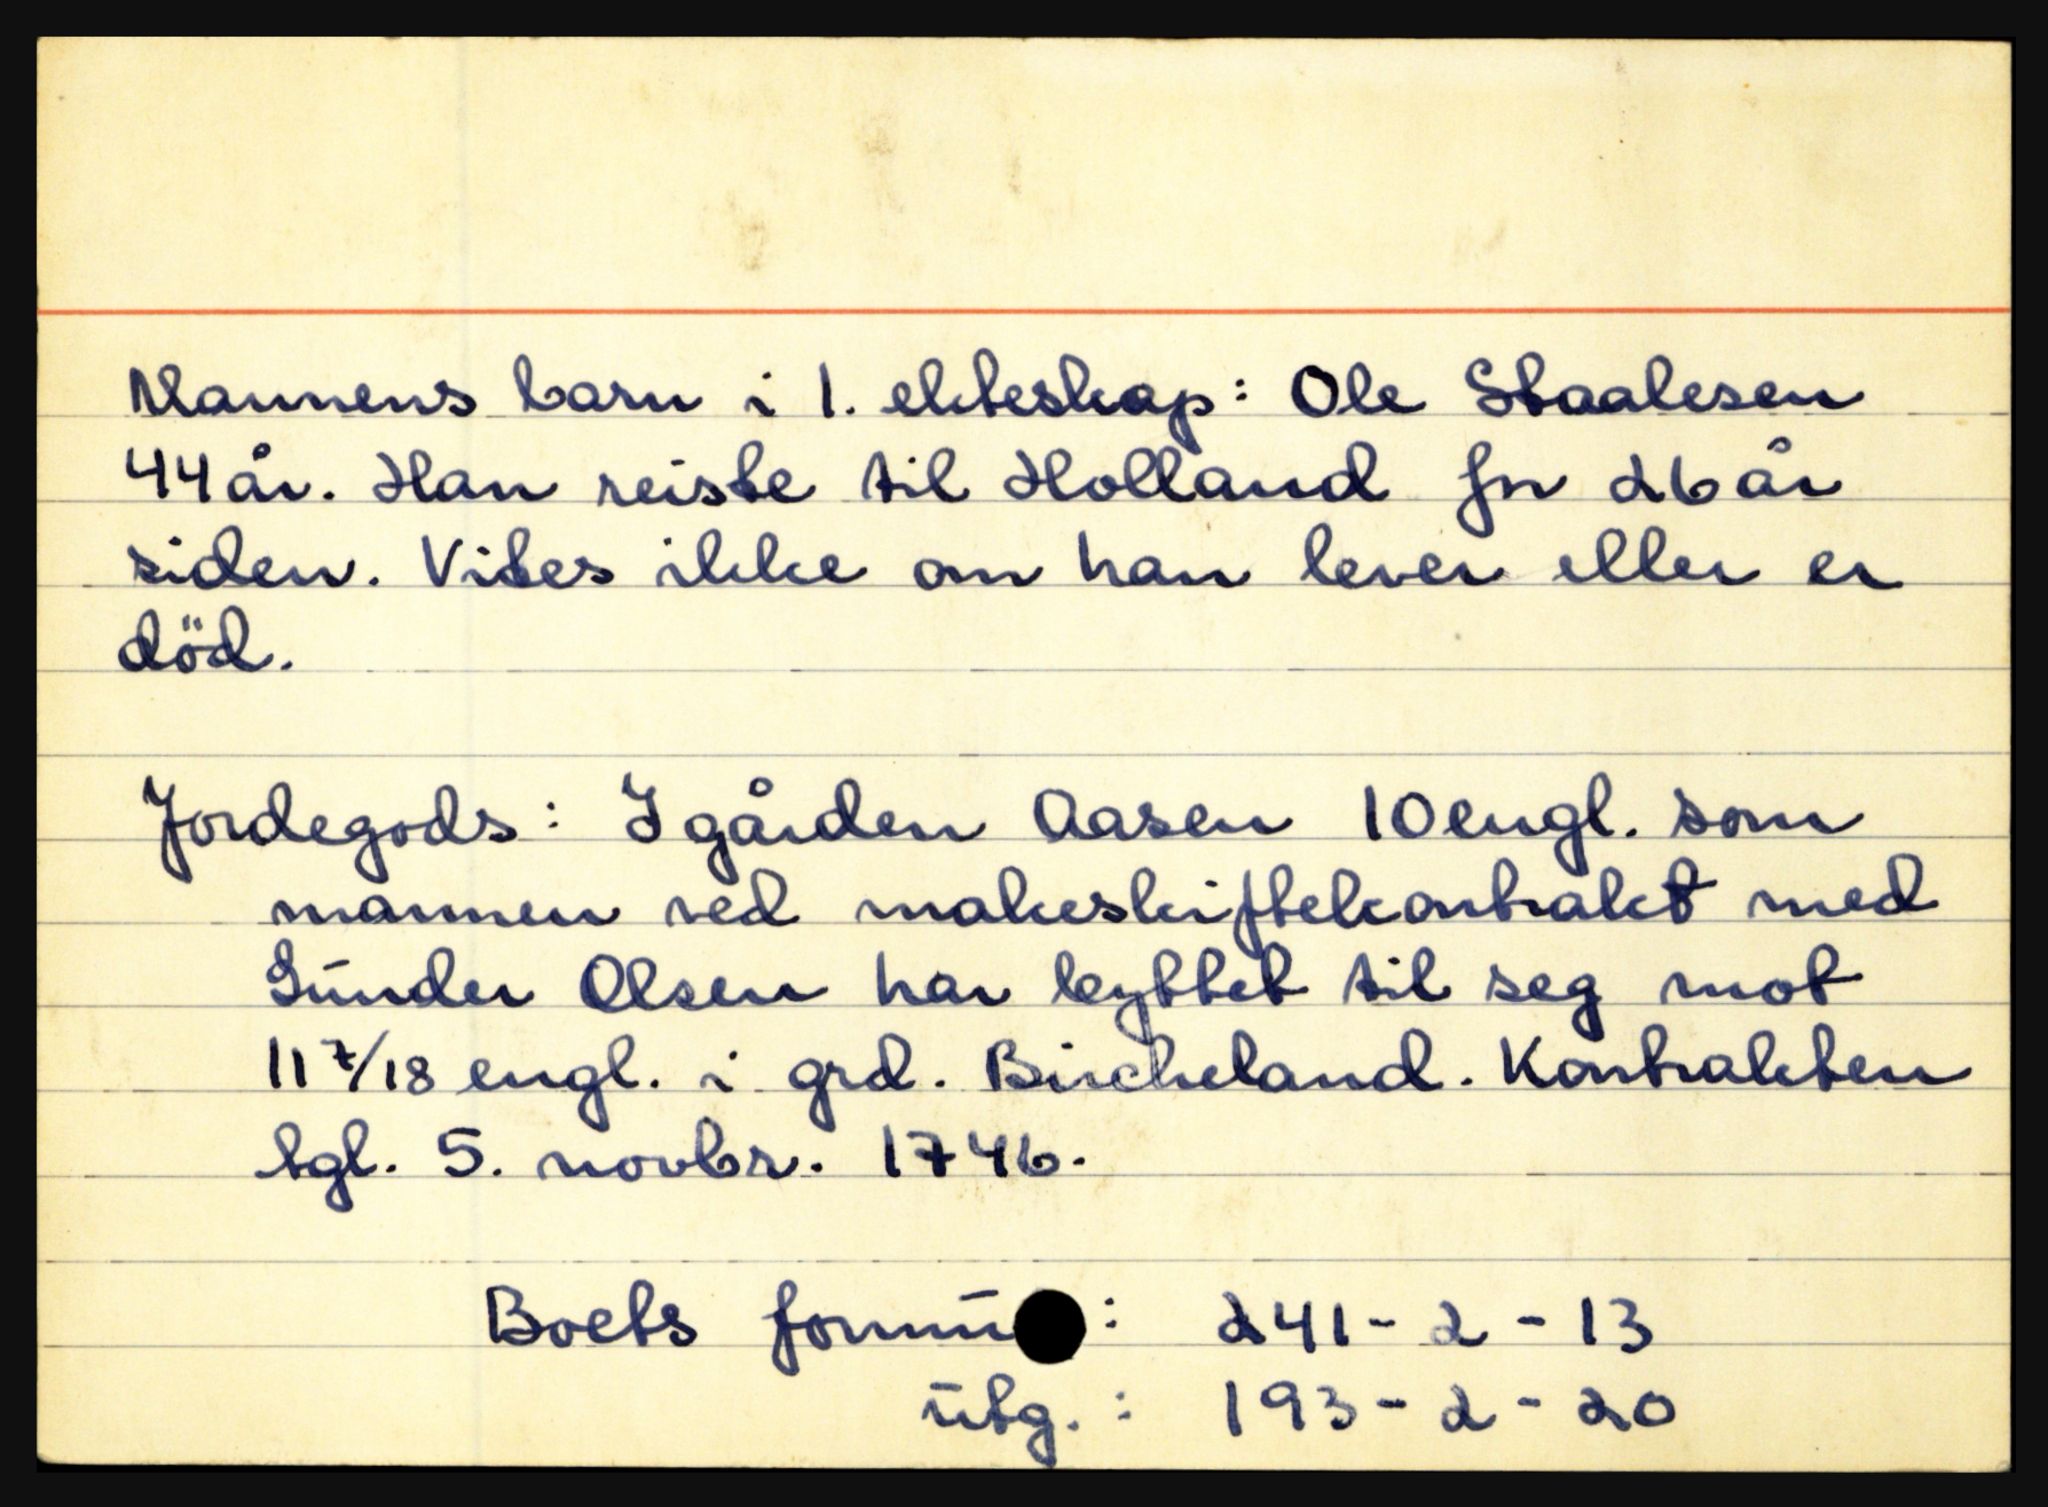 Mannens barn i 1. ekteskap: Ole Staalesen
44 år. Han reiste til Holland for 26 år
siden. Vites ikke om han lever eller er
död.
Jordegods: I gården Aasen 10 engl. som
mannen ved makeskiftekontrakt med
Gunder Olsen har byttet til seg mot
11 7/18 engl. i grd. Bircheland. Kontrakten
tgl. 5. novbr. 1746.
Boets : 241 - 2 - 13
utg. : 193 - 2 - 20